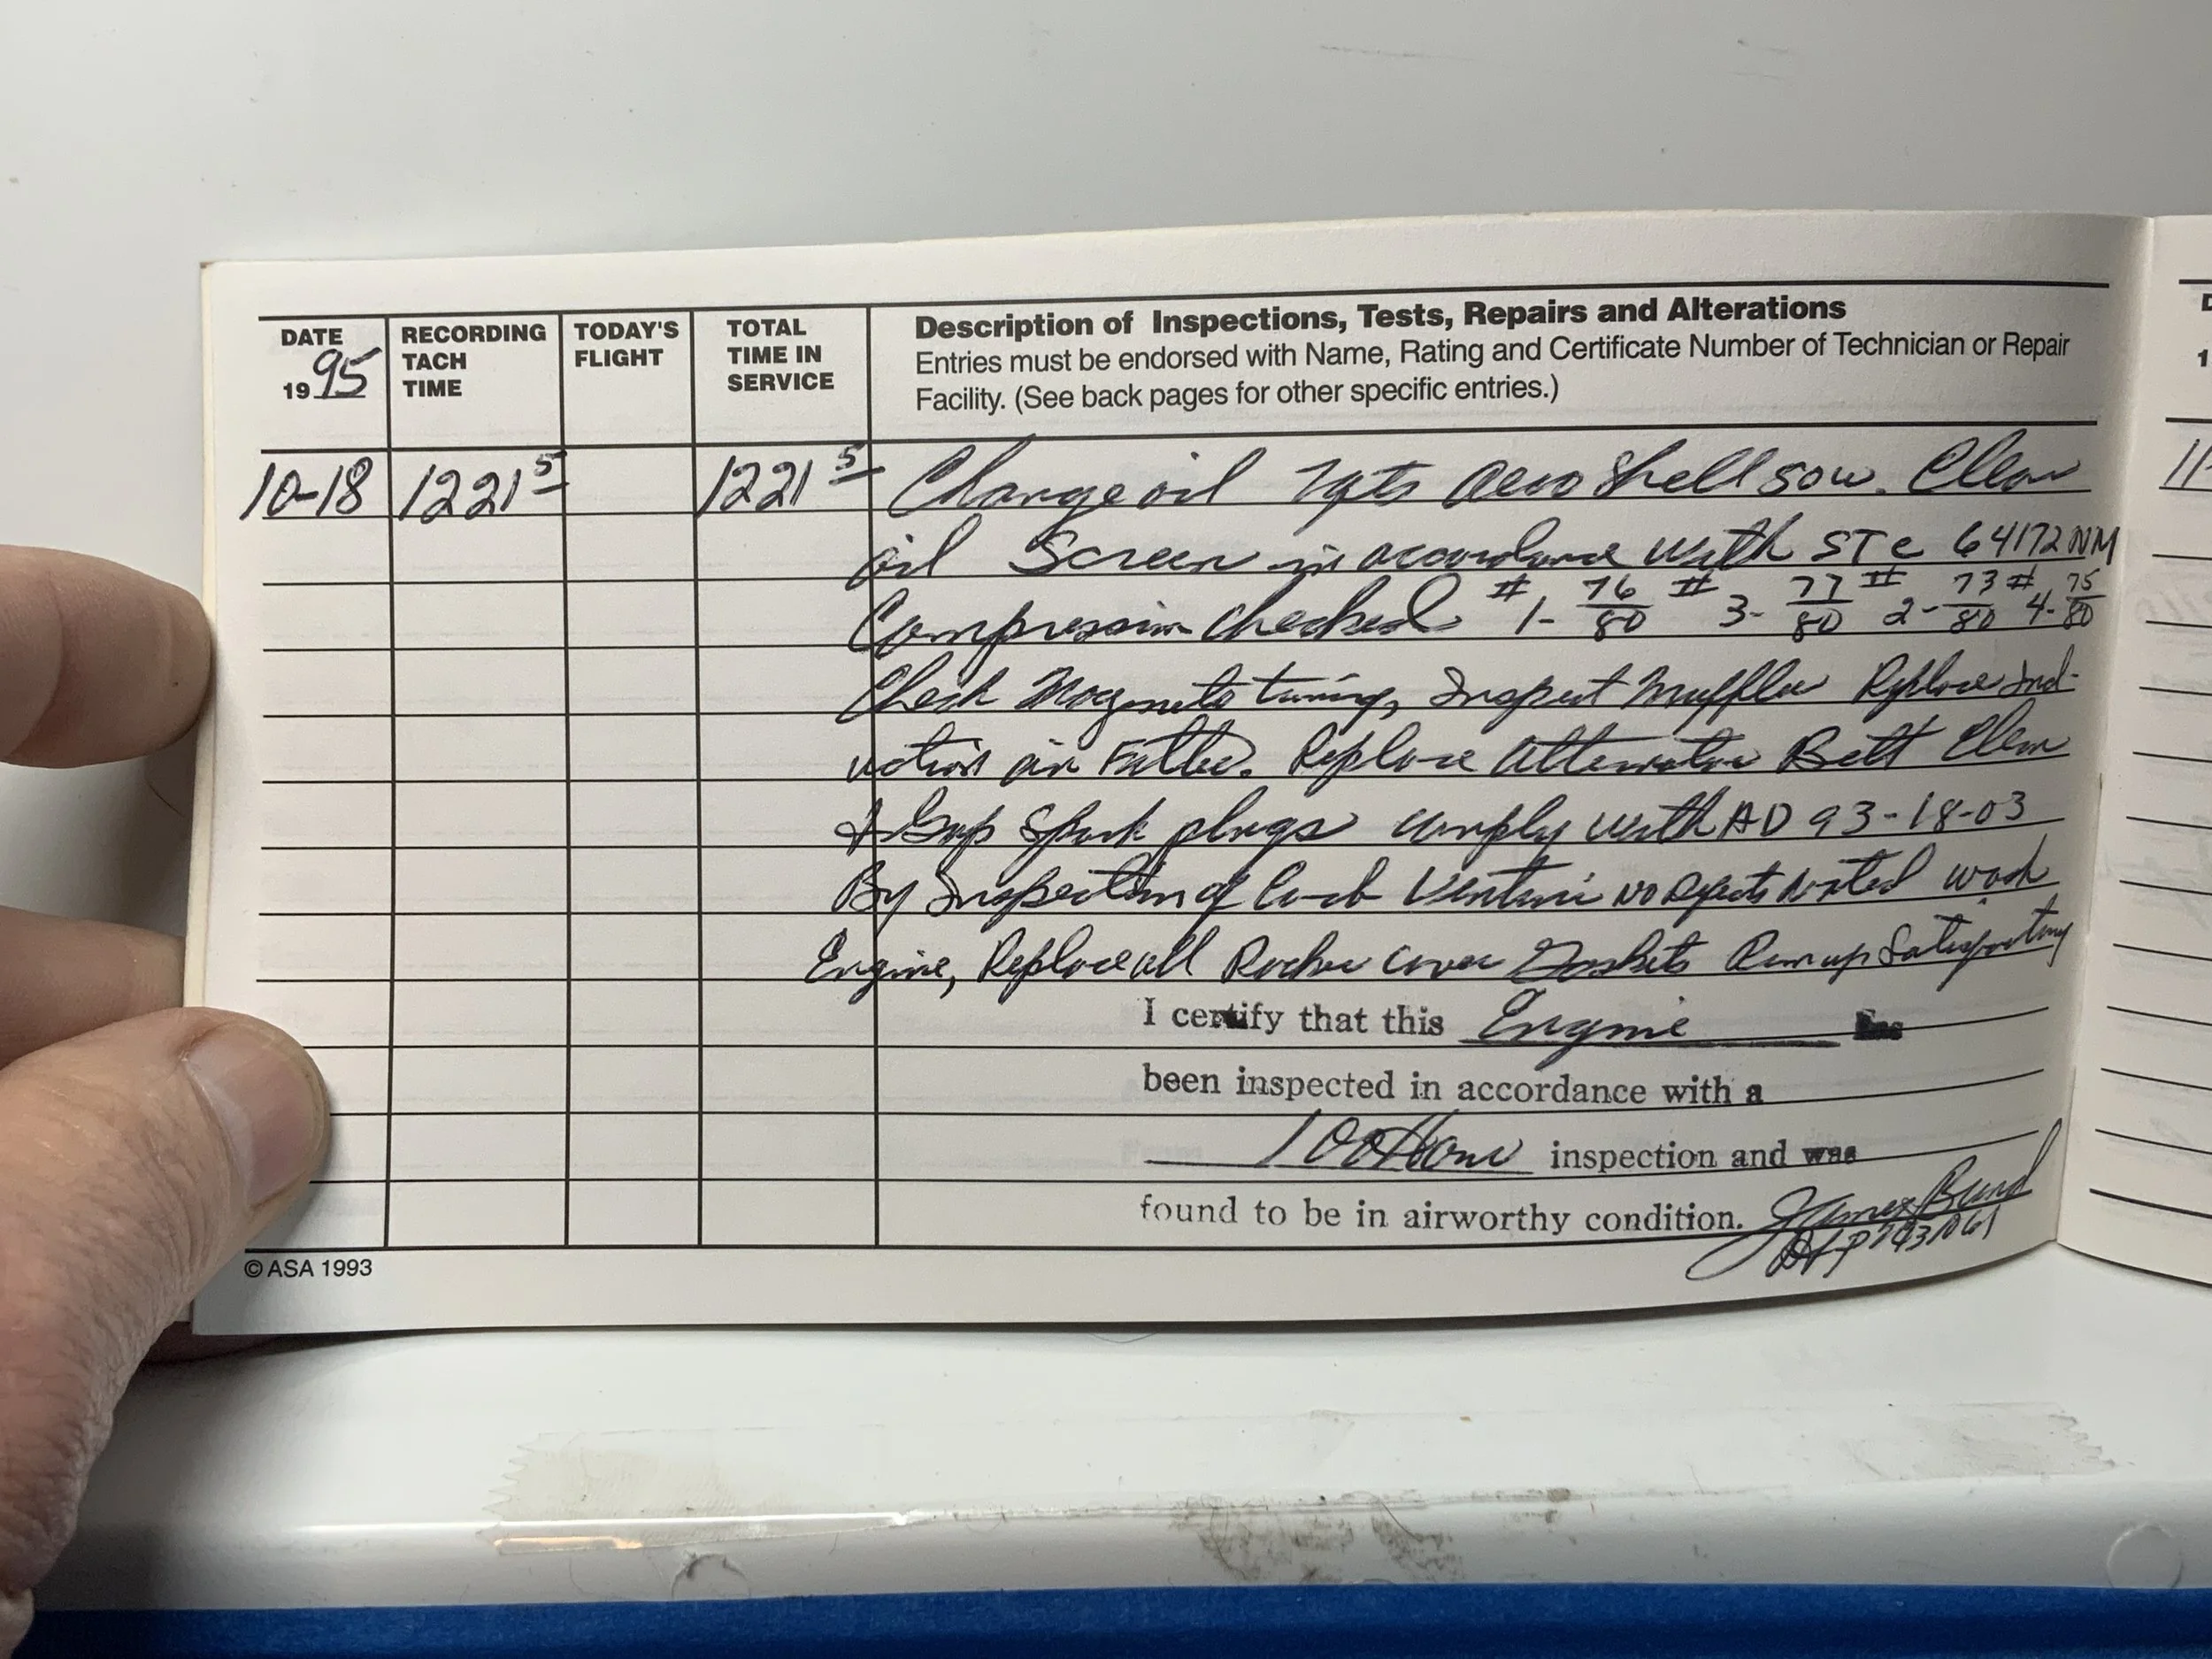 DATE RECORDING TODAY'S TOTAL Description of Inspections, Tests, Repairs and Alterations
19 95 TACH FLIGHT TIME IN Entries must be endorsed with Name, Rating and Certificate Number of Technician or Repair
TIME SERVICE Facility. (See back pages for other specific entries.)
10-18 1221 5 1221 5 Change oil 7qts Aero Shell 50W. Clean
oil Screen in accordance with STC 64172NM
Compression checked # 1- 76/80 # 3- 77/80 # 2- 73/80 # 4- 75/80
Check Magneto timing, Inspect Muffler Replace Ind-
uction air Filter. Replace Alternator Belt Clean
& Gap Spark plugs comply with AD 93-18-03
By Inspection of Carb Venturi no defects Noted wash
Engine, Replace all Rocker cover Gaskets Run up Satisfactory
I certify that this Engine has
been inspected in accordance with a
100 Hour inspection and was
found to be in airworthy condition. James
© ASA 1993